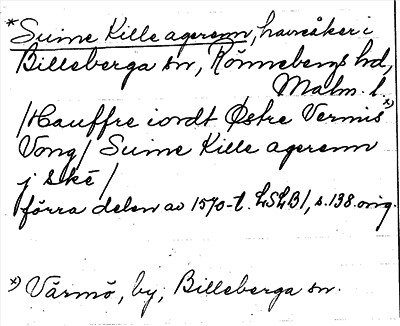 *Suine Kille agerenn, havreåker i
Billeberga sn, Rönnebergs hd,
Malm. l.
/Hauffre iordt Østre Vermis x)
Vong/ Suine Kille agerenn
j Ské/
förra delen av 1570-t. LSLB/, s.138 orig.
x) Värmö, by, Billeberga sn.